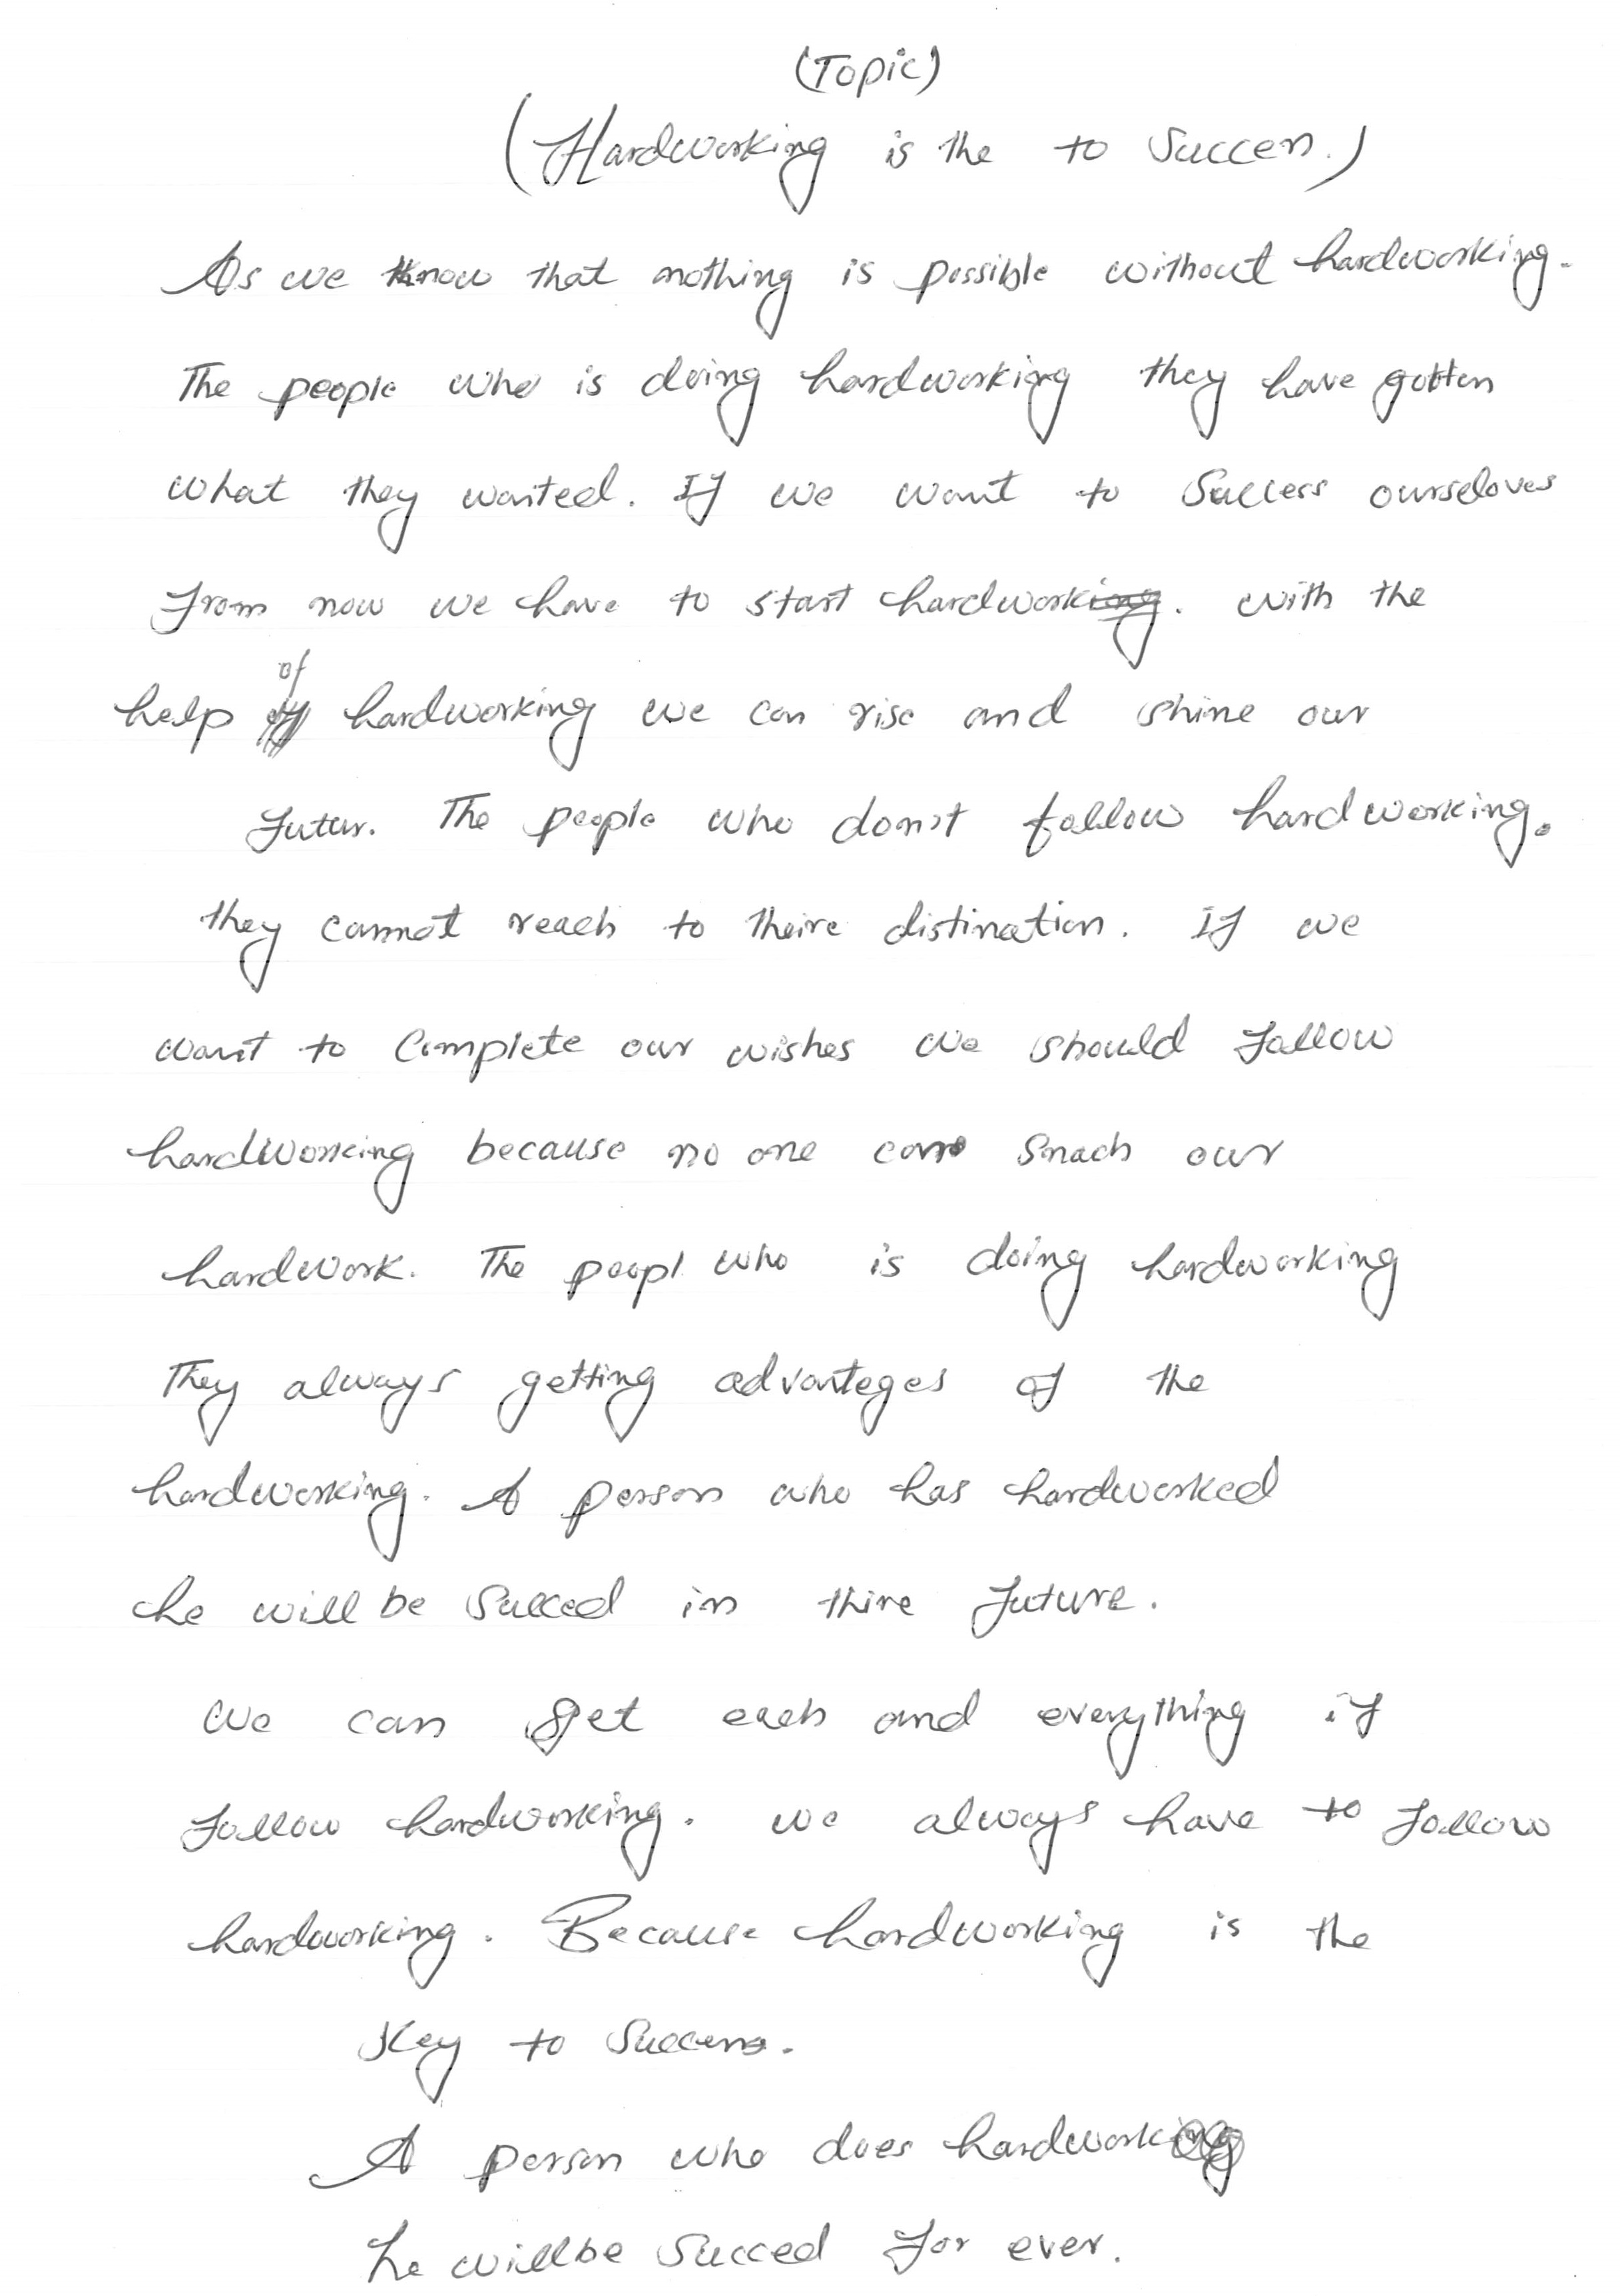 (Topic)
(Hardworking is the to Success.)
As we know that nothing is possible without hardworking.
The people who is doing hardworking they have gotten
what they wanted. If we want to Success ourseloves
from now we have to start hardwork. with the
help of hardworking we can rise and shine our
futur. The people who don't follow hardworking.
they cannot reach to theire distination. If we
want to Complete our wishes we should follow
hardworking because no one can snach our
hardwork. The peopl who is doing hardworking
They always getting advanteges of the
hardworking. A person who has hardworked
he will be Succed in thire future.
we can get each and everything if
follow hardworking. we always have to follow
hardworking. Because hardworking is the
Key to Success.
A person who does hardwork
he will be Succed for ever.